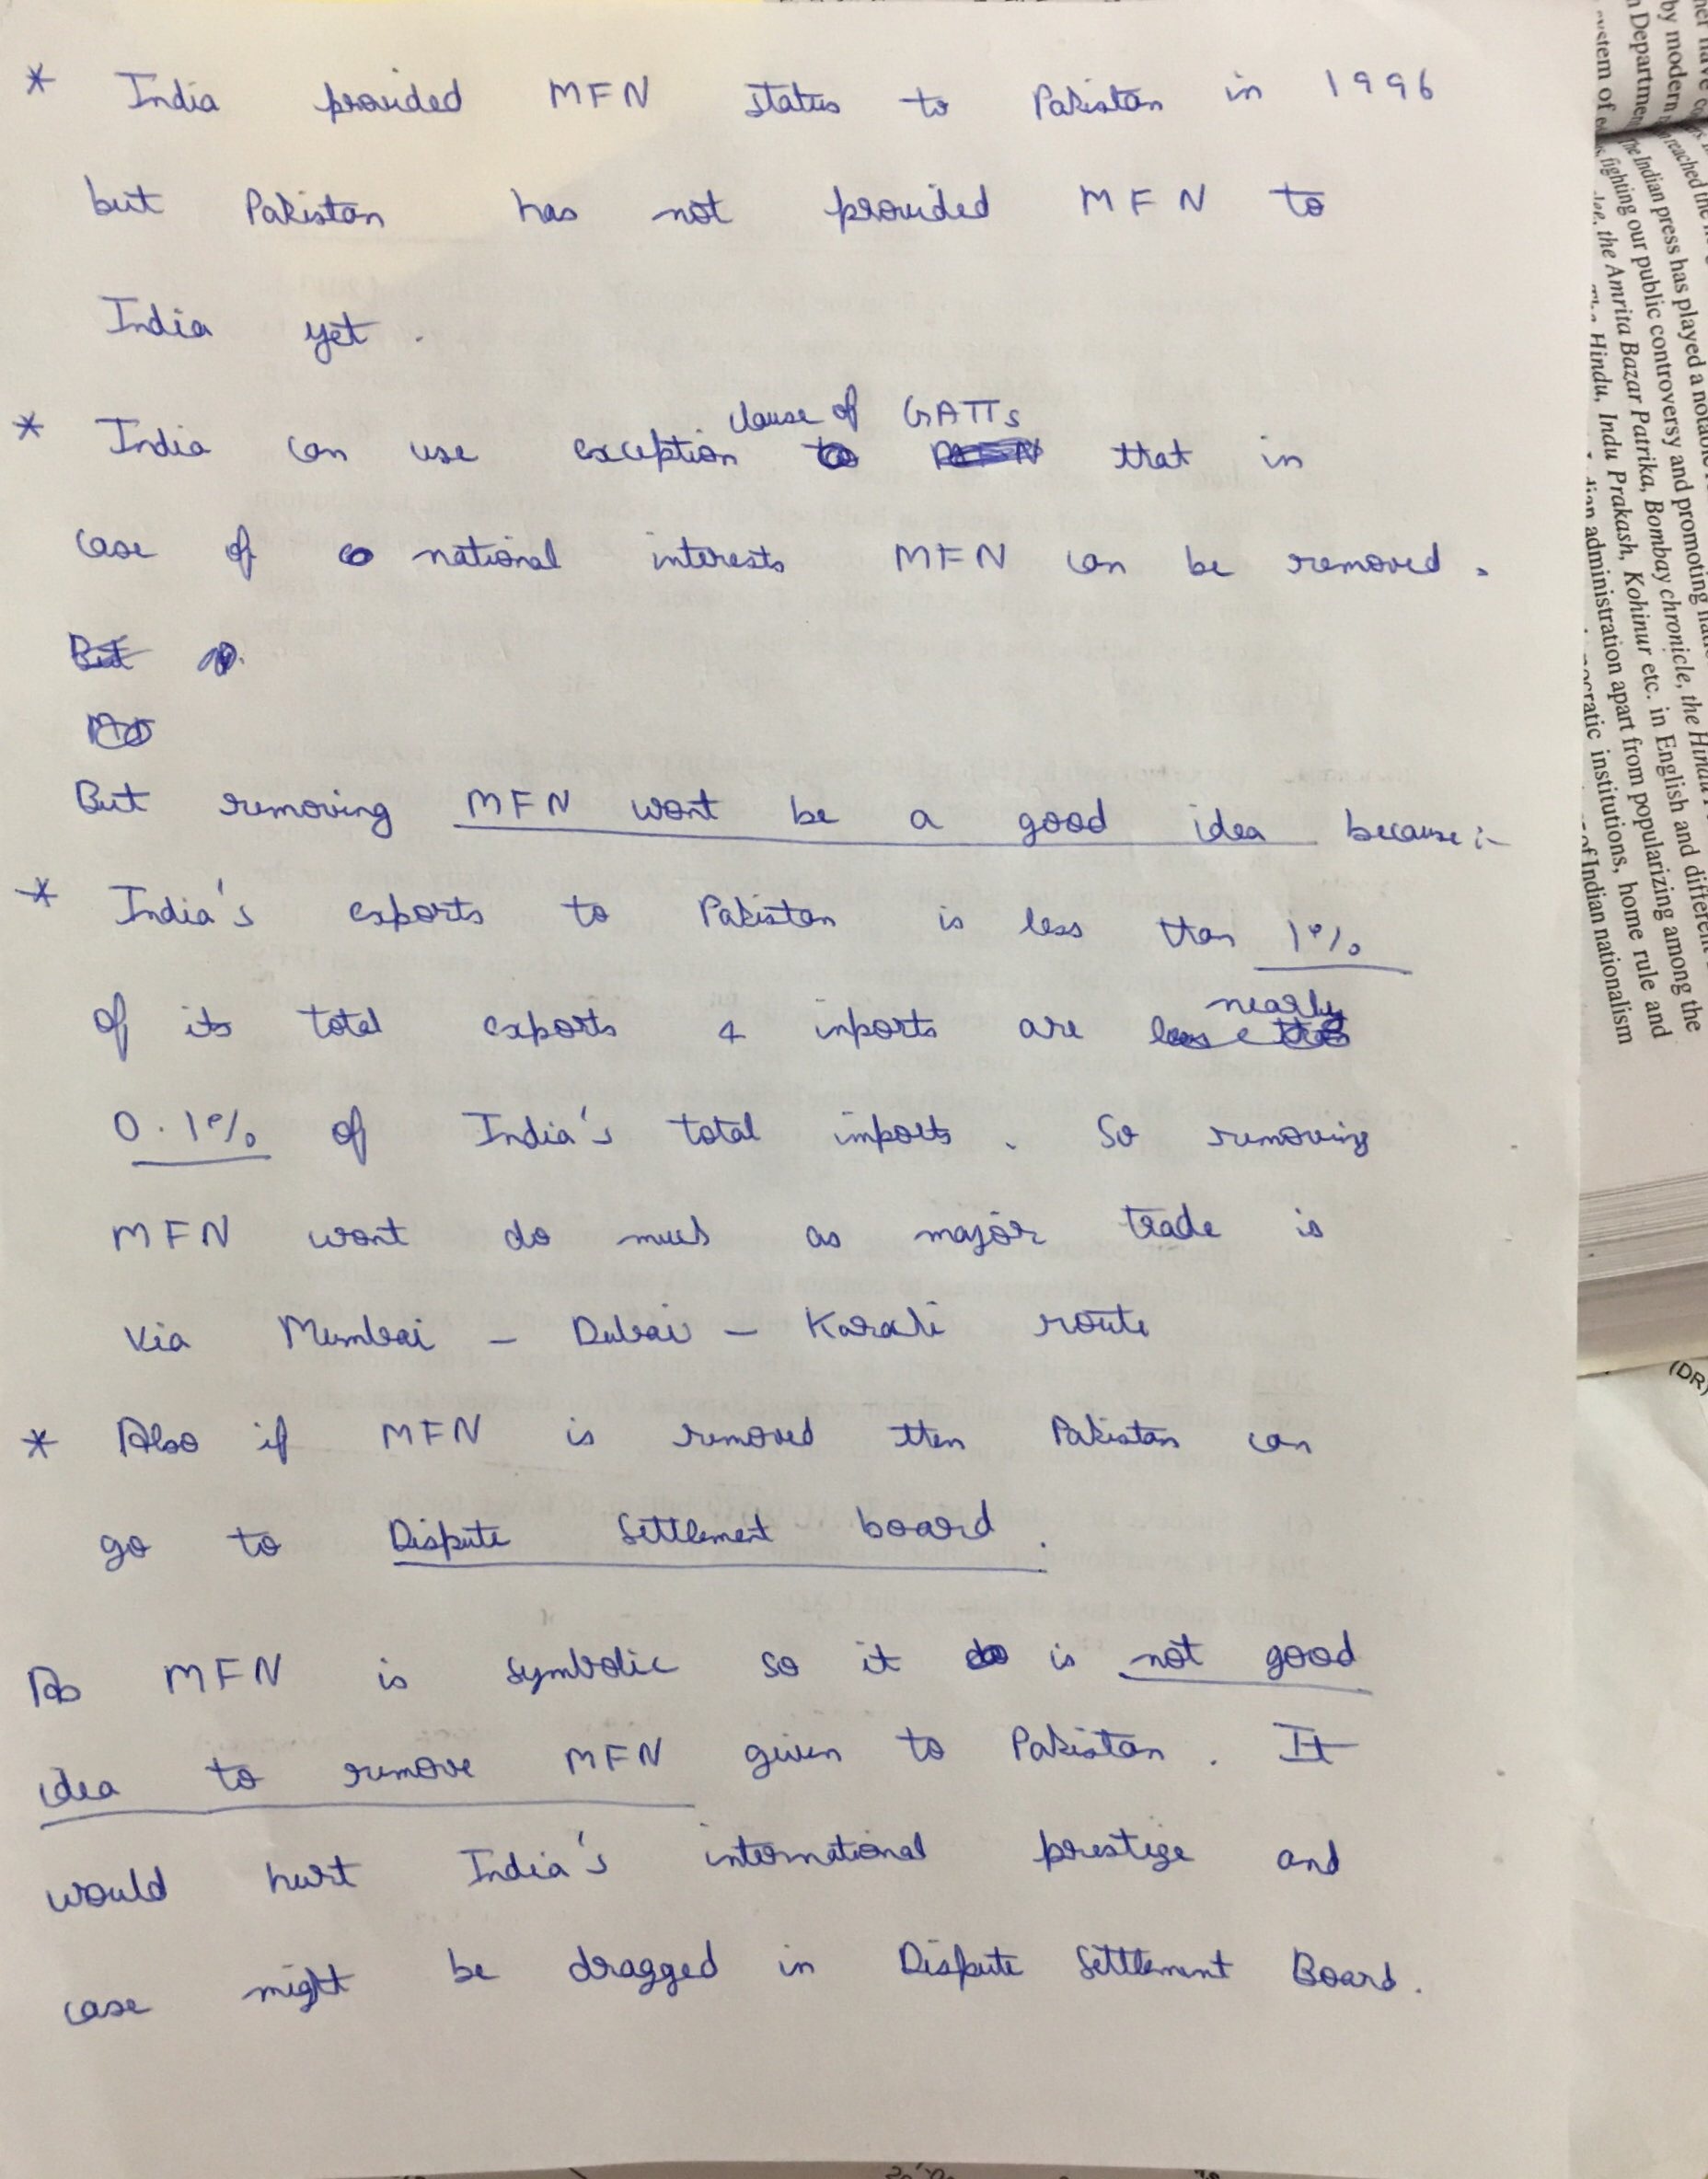 * India provided MFN status to Pakistan in 1996
but Pakistan has not provided MFN to
India yet.
* India can use exception clause of GATTs that in
case of national interests MFN can be removed.
But
But removing MFN wont be a good idea because :-
* India's exports to Pakistan is less than 1%
of its total exports & inports are nearly
0.1% of India's total imports. So removing
MFN wont do much as major trade is
via Mumbai - Dubai - Karachi route
* Also if MFN is removed then Pakistan can
go to Dispute Settlement board.
As MFN is symbolic so it is not good
idea to remove MFN given to Pakistan. It
would hurt India's international prestige and
case might be dragged in Dispute Settlement Board.
by modern
Departmen
reached the
system of
the Indian press has played a notable
fighting our public controversy and promoting
the Amrita Bazar Patrika, Bombay chronicle, the Hindu
Hindu, Indu Prakash, Kohinur etc. in English and different
administration apart from popularizing among the
institutions, home rule and
of Indian nationalism
(DR)